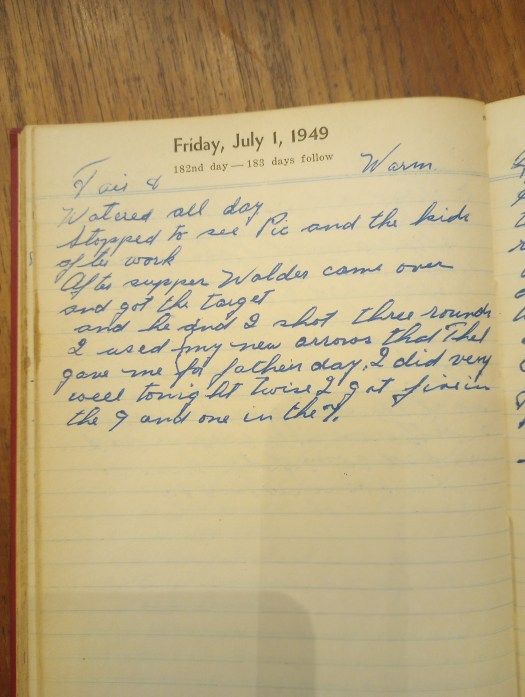 Friday, July 1, 1949
182nd day — 183 days follow
Fair & Warm
Watered all day
Stopped to see Pic and the kids
after work
After supper Walder came over
and got the target
and he and I shot three rounds
I used my new arrows that Thel
gave me for father day. I did very
well tonight twise I got five in
the 9 and one in the 7.